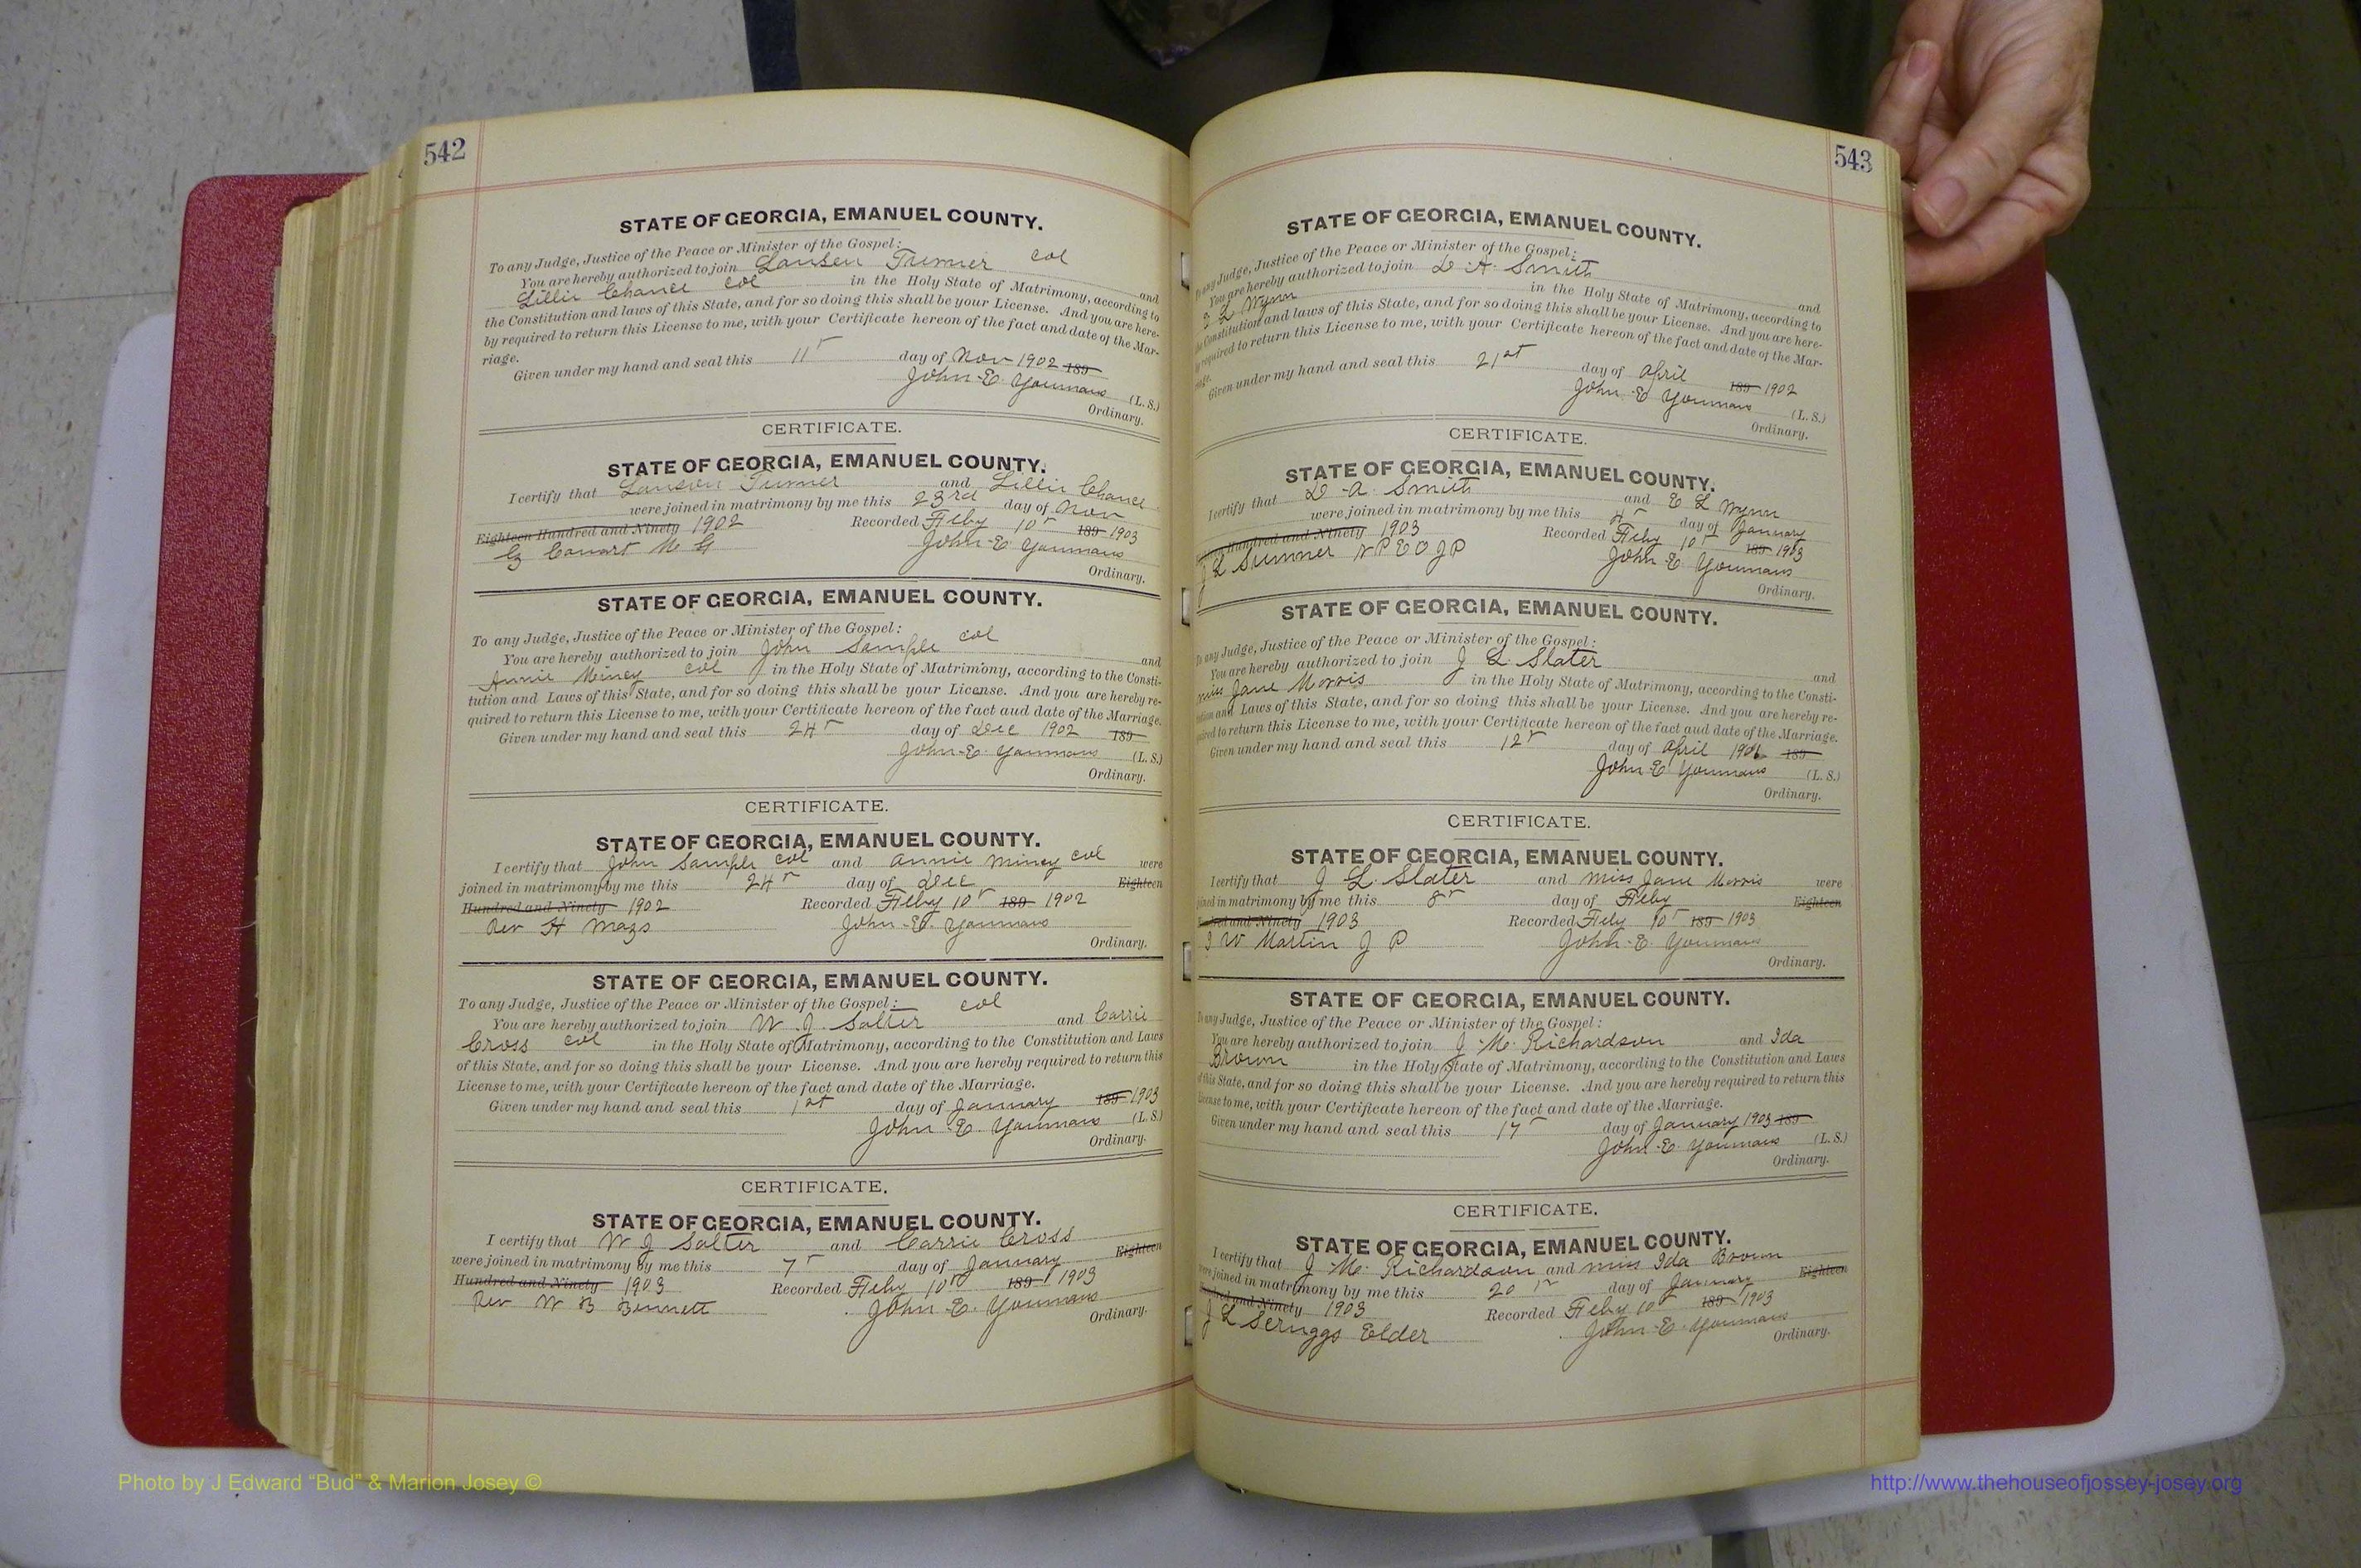 542
STATE OF GEORGIA, EMANUEL COUNTY.
To any Judge, Justice of the Peace or Minister of the Gospel:
You are hereby authorized to join Lawson Turner col and
Lillie Chance col in the Holy State of Matrimony, according to
the Constitution and laws of this State, and for so doing this shall be your License. And you are here-
by required to return this License to me, with your Certificate hereon of the fact and date of the Mar-
riage.
Given under my hand and seal this 11th day of Nov 1902 189
John E. Youmans (L. S.)
Ordinary.
CERTIFICATE.
STATE OF GEORGIA, EMANUEL COUNTY.
I certify that Lawson Turner and Lillie Chance
were joined in matrimony by me this 23rd day of Nov
Eighteen Hundred and Ninety 1902 Recorded Feby 10th 189 1903
Canart M G John E. Youmans
Ordinary.
STATE OF GEORGIA, EMANUEL COUNTY.
To any Judge, Justice of the Peace or Minister of the Gospel:
You are hereby authorized to join John Sample col and
Annie Mincy col in the Holy State of Matrimony, according to the Consti-
tution and Laws of this State, and for so doing this shall be your License. And you are hereby re-
quired to return this License to me, with your Certificate hereon of the fact aud date of the Marriage.
Given under my hand and seal this 24th day of Dec 1902 189
John E. Youmans (L. S.)
Ordinary.
CERTIFICATE.
STATE OF GEORGIA, EMANUEL COUNTY.
I certify that John Sample col and Annie Mincy col were
joined in matrimony by me this 24th day of Dec Eighteen
Hundred and Ninety 1902 Recorded Feby 10th 189 1902
Rev H Mazs John E. Youmans
Ordinary.
STATE OF GEORGIA, EMANUEL COUNTY.
To any Judge, Justice of the Peace or Minister of the Gospel:
You are hereby authorized to join W. J. Salter col and Carrie
Cross col in the Holy State of Matrimony, according to the Constitution and Laws
of this State, and for so doing this shall be your License. And you are hereby required to return this
License to me, with your Certificate hereon of the fact and date of the Marriage.
Given under my hand and seal this 1st day of January 189 1903
John E. Youmans (L. S.)
Ordinary.
CERTIFICATE.
STATE OF GEORGIA, EMANUEL COUNTY.
I certify that W J Salter and Carrie Cross
were joined in matrimony by me this 7th day of January Eighteen
Hundred and Ninety 1903 Recorded Feby 10th 189 1903
Rev W B Bennett John E. Youmans
Ordinary.
543
STATE OF GEORGIA, EMANUEL COUNTY.
To any Judge, Justice of the Peace or Minister of the Gospel:
You are hereby authorized to join D. A. Smith and
E L Wynn in the Holy State of Matrimony, according to
the Constitution and laws of this State, and for so doing this shall be your License. And you are here-
by required to return this License to me, with your Certificate hereon of the fact and date of the Mar-
riage.
Given under my hand and seal this 21st day of April 189 1902
John E Youmans (L. S.)
Ordinary.
CERTIFICATE.
STATE OF GEORGIA, EMANUEL COUNTY.
I certify that D. A. Smith and E L Wynn
were joined in matrimony by me this 4th day of January
Hundred and Ninety 1903 Recorded Feby 10th 189 1903
J L Sumner N P E O J P John E Youmans
Ordinary.
STATE OF GEORGIA, EMANUEL COUNTY.
To any Judge, Justice of the Peace or Minister of the Gospel:
You are hereby authorized to join J L Slater and
Miss Jane Morris in the Holy State of Matrimony, according to the Consti-
tution and Laws of this State, and for so doing this shall be your License. And you are hereby re-
quired to return this License to me, with your Certificate hereon of the fact aud date of the Marriage.
Given under my hand and seal this 12th day of April 189
John E Youmans (L. S.)
Ordinary.
CERTIFICATE.
STATE OF GEORGIA, EMANUEL COUNTY.
I certify that J L. Slater and Miss Jane Morris were
joined in matrimony by me this 8th day of Feby Eighteen
Hundred and Ninety 1903 Recorded Feby 10th 189 1903
W Martin J P John E. Youmans
Ordinary.
STATE OF GEORGIA, EMANUEL COUNTY.
To any Judge, Justice of the Peace or Minister of the Gospel:
You are hereby authorized to join J. M. Richardson and Ida
Brown in the Holy State of Matrimony, according to the Constitution and Laws
of this State, and for so doing this shall be your License. And you are hereby required to return this
License to me, with your Certificate hereon of the fact and date of the Marriage.
Given under my hand and seal this 17th day of January 1903 189
John E Youmans (L. S.)
Ordinary.
CERTIFICATE.
STATE OF GEORGIA, EMANUEL COUNTY.
I certify that J. M. Richardson and Miss Ida Brown
were joined in matrimony by me this 20th day of January Eighteen
Hundred and Ninety 1903 Recorded Feby 10th 189 1903
J L Scruggs Elder John E. Youmans
Ordinary.
Photo by J Edward “Bud” & Marion Josey ©
http://www.thehouseofjossey-josey.org